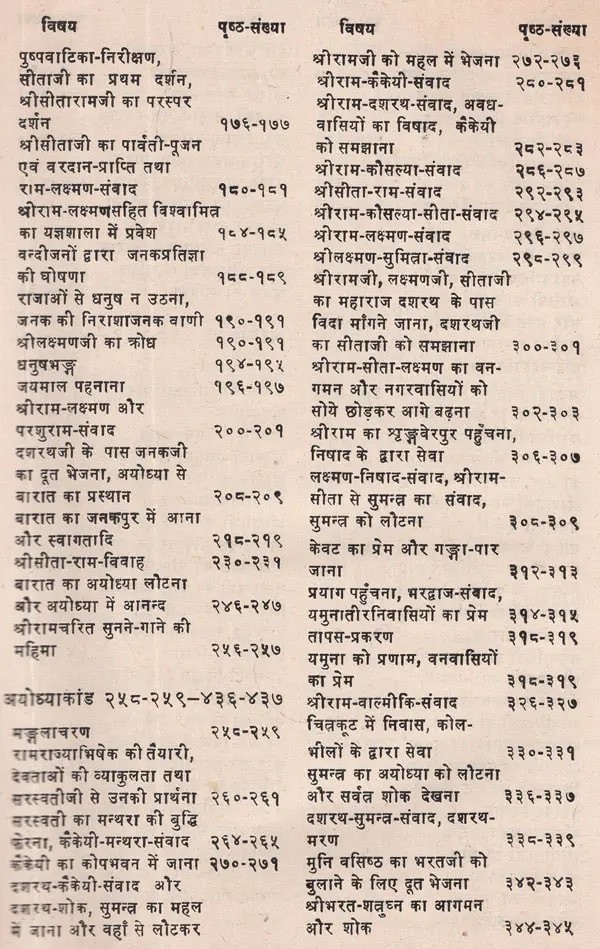 विषय पृष्ठ-संख्या
पुष्पवाटिका-निरीक्षण,
सीताजी का प्रथम दर्शन,
श्रीसीतारामजी का परस्पर
दर्शन १७६-१७७
श्रीसीताजी का पार्वती-पूजन
एवं वरदान-प्राप्ति तथा
राम-लक्ष्मण-संवाद १८०-१८१
श्रीराम-लक्ष्मणसहित विश्वामित्र
का यज्ञशाला में प्रवेश १८४-१८५
वन्दीजनों द्वारा जनकप्रतिज्ञा
की घोषणा १८८-१८९
राजाओं से धनुष न उठना,
जनक की निराशाजनक वाणी १९०-१९१
श्रीलक्ष्मणजी का क्रोध १९०-१९१
धनुषभङ्ग १९४-१९५
जयमाल पहनाना १९६-१९७
श्रीराम-लक्ष्मण और
परशुराम-संवाद २००-२०१
दशरथजी के पास जनकजी
का दूत भेजना, अयोध्या से
बारात का प्रस्थान २०८-२०९
बारात का जनकपुर में आना
और स्वागतादि २१८-२१९
श्रीसीता-राम-विवाह २३०-२३१
बारात का अयोध्या लौटना
और अयोध्या में आनन्द २४६-२४७
श्रीरामचरित सुनने-गाने की
महिमा २५६-२५७
अयोध्याकांड २५८-२५९—४३६-४३७
मङ्गलाचरण २५८-२५९
रामराज्याभिषेक की तैयारी,
देवताओं की व्याकुलता तथा
सरस्वतीजी से उनकी प्रार्थना २६०-२६१
सरस्वती का मन्थरा की बुद्धि
फेरना, कैकेयी-मन्थरा-संवाद २६४-२६५
कैकेयी का कोपभवन में जाना २७०-२७१
दशरथ-कैकेयी-संवाद और
दशरथ-शोक, सुमन्त्र का महल
में जाना और वहाँ से लौटकर
विषय पृष्ठ-संख्या
श्रीरामजी को महल में भेजना २७२-२७३
श्रीराम-कैकेयी-संवाद २८०-२८१
श्रीराम-दशरथ-संवाद, अवध-
वासियों का विषाद, कैकेयी
को समझाना २८२-२८३
श्रीराम-कौसल्या-संवाद २८६-२८७
श्रीसीता-राम-संवाद २९२-२९३
श्रीराम-कौसल्या-सीता-संवाद २९४-२९५
श्रीराम-लक्ष्मण-संवाद २९६-२९७
श्रीलक्ष्मण-सुमित्रा-संवाद २९८-२९९
श्रीरामजी, लक्ष्मणजी, सीताजी
का महाराज दशरथ के पास
विदा माँगने जाना, दशरथजी
का सीताजी को समझाना ३००-३०१
श्रीराम-सीता-लक्ष्मण का वन-
गमन और नगरवासियों को
सोये छोड़कर आगे बढ़ना ३०२-३०३
श्रीराम का श्रृङ्गवेरपुर पहुँचना,
निषाद के द्वारा सेवा ३०६-३०७
लक्ष्मण-निषाद-संवाद, श्रीराम-
सीता से सुमन्त्र का संवाद,
सुमन्त्र को लोटना ३०८-३०९
केवट का प्रेम और गङ्गा-पार
जाना ३१२-३१३
प्रयाग पहुँचना, भरद्वाज-संवाद,
यमुनातीरनिवासियों का प्रेम ३१४-३१५
तापस-प्रकरण ३१८-३१९
यमुना को प्रणाम, वनवासियों
का प्रेम ३१८-३१९
श्रीराम-वाल्मीकि-संवाद ३२६-३२७
चित्रकूट में निवास, कोल-
भीलों के द्वारा सेवा ३३०-३३१
सुमन्त्र का अयोध्या को लौटना
और सर्वत्र शोक देखना ३३६-३३७
दशरथ-सुमन्त्र-संवाद, दशरथ-
मरण ३३८-३३९
मुनि वसिष्ठ का भरतजी को
बुलाने के लिए दूत भेजना ३४२-३४३
श्रीभरत-शत्रुघ्न का आगमन
और शोक ३४४-३४५